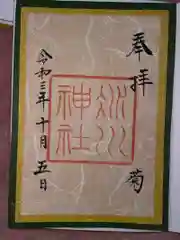 奉拝
菊
氷川
神社
令和三年十月五日